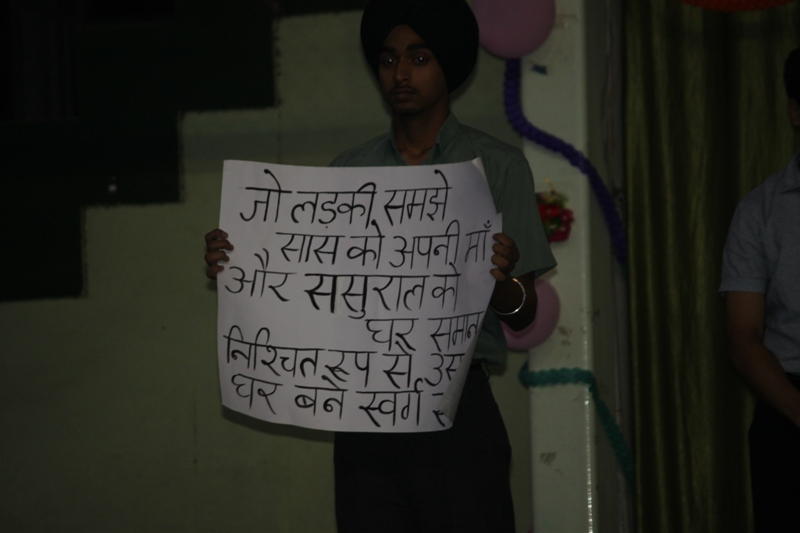 जो लड़की समझे
सास को अपनी माँ
और ससुराल को
घर समान
निश्चित रूप से उस
घर बने स्वर्ग